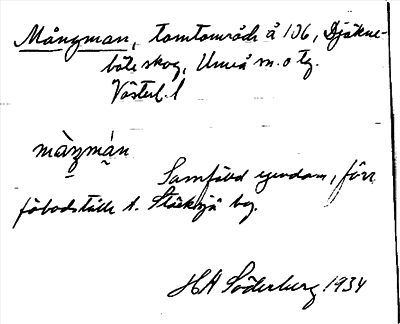 Mångman, tomtområde å 106, Djäkne-
böle skog, Umeå sn. o tg.
Västerb. l
màŋmàn
Samfälld egendom, förr
fäbodställe t. Stöcksjö by.
HA Söderberg 1934